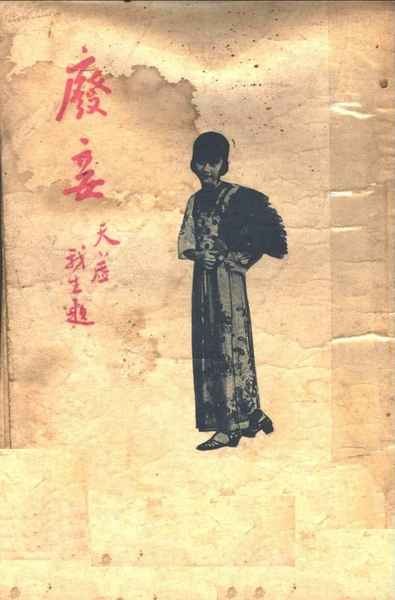 廢妾
天虛
我生題